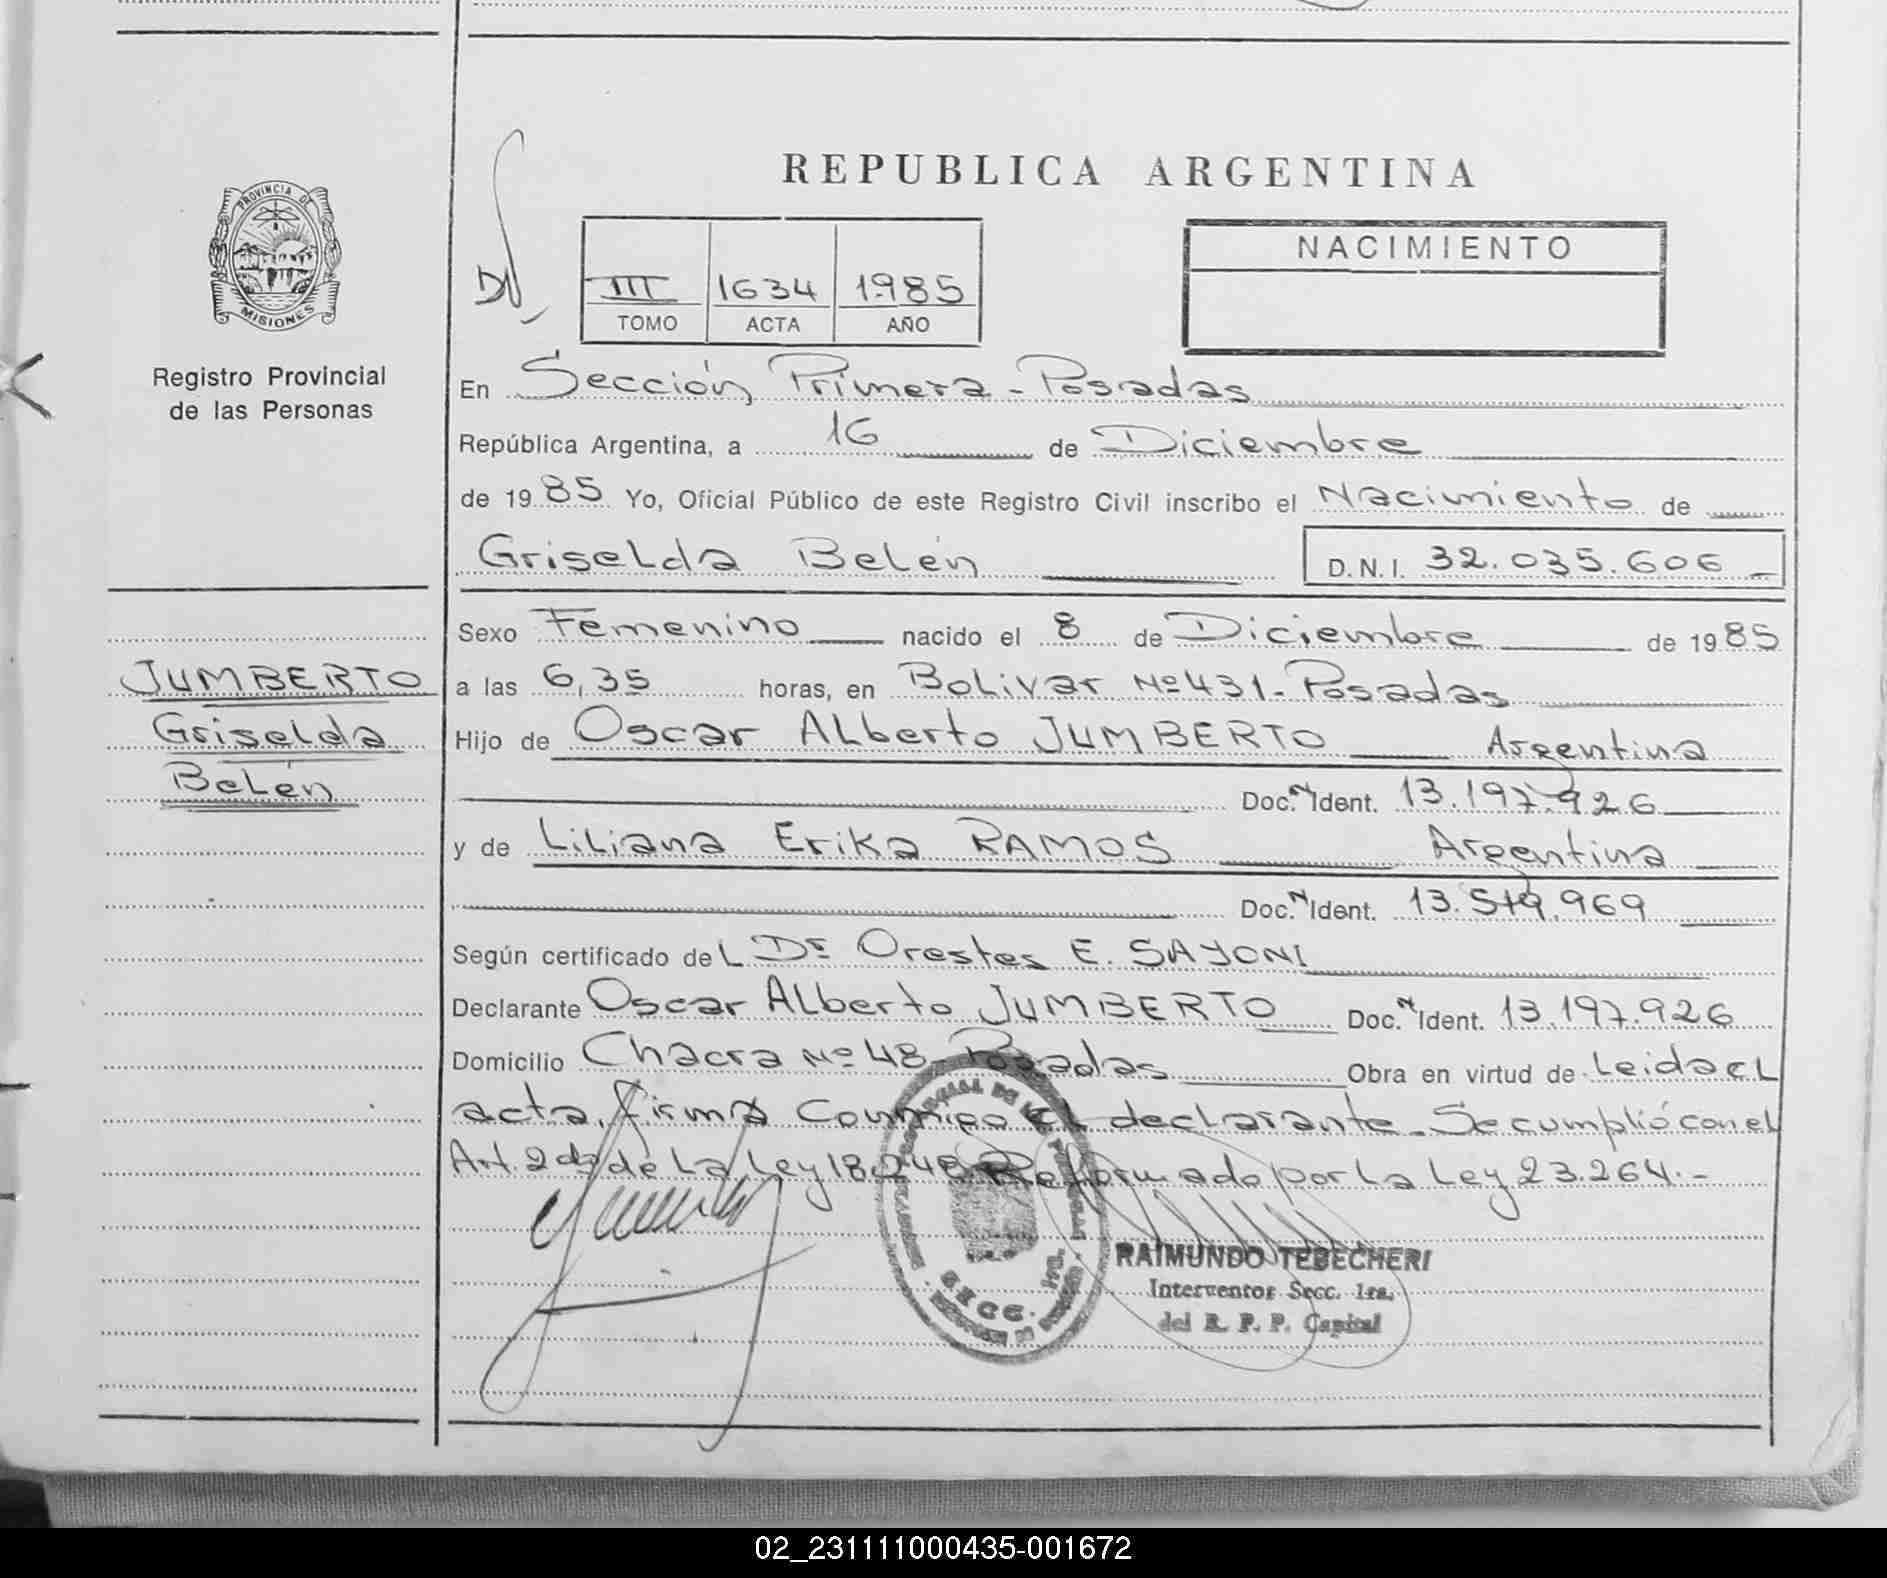 REPUBLICA ARGENTINA
PROVINCIA DE
MISIONES
Registro Provincial
de las Personas
III 1634 1985
TOMO ACTA AÑO
NACIMIENTO
En Sección Primera - Posadas
República Argentina, a 16 de Diciembre
de 1985 Yo, Oficial Público de este Registro Civil inscribo el Nacimiento de
Griselda Belén D.N.I. 32.035.606
JUMBERTO
Griselda
Belén
Sexo Femenino nacido el 8 de Diciembre de 1985
a las 6,35 horas, en Bolivar Nº 431 - Posadas
Hijo de Oscar Alberto JUMBERTO Argentina
Doc. N Ident. 13.197.926
y de Liliana Erika RAMOS Argentina
Doc. N Ident. 13.519.969
Según certificado del Dr Orestes E. SAYONI
Declarante Oscar Alberto JUMBERTO Doc. N Ident. 13.197.926
Domicilio Chacra Nº 48 - Posadas Obra en virtud de Leida el
acta, firma Conmigo el declarante. Se cumplió con el
Art. 2do de La Ley 18.248 Reformado por La Ley 23.264.-
RAIMUNDO TEBECHERI
Interventor Secc. 1ra.
del R. P. P. Capital
SECC.
02_231111000435-001672